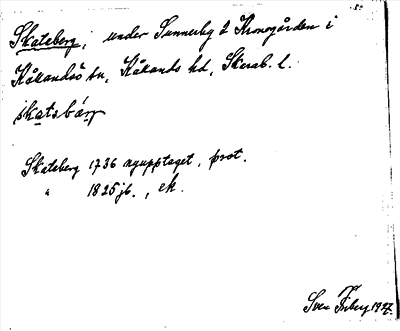 Skateberg, under Sunnerby 2 Kronogården i
Kållandsö sn, Kållands hd, Skarab. l.
skatsbärj
Skateberg 1736 nyupptaget, prot.
" 1825 jb., ek.
Sven Friberg 1927.